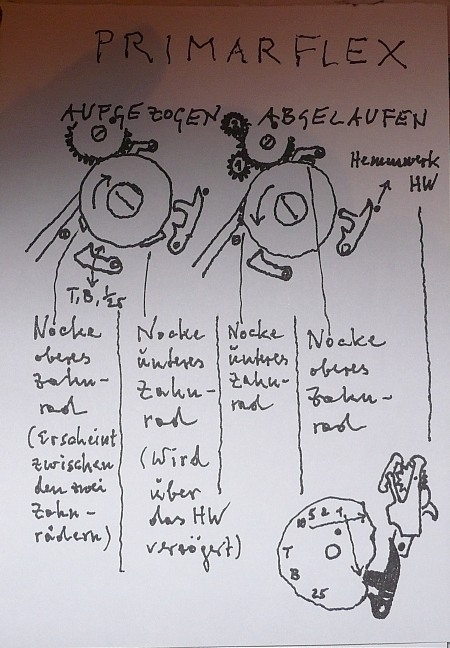 PRIMARFLEX
AUFGEZOGEN
ABGELAUFEN
Hemmwerk
HW
T, B, 1/25
Nocke
oberes
Zahn-
rad
(Erscheint
zwischen
den zwei
Zahn-
rädern)
Nocke
unteres
Zahn-
rad
(Wird
über
das HW
verzögert)
Nocke
unteres
Zahn-
rad
Nocke
oberes
Zahn-
rad
10 5 2 1
T
B
25